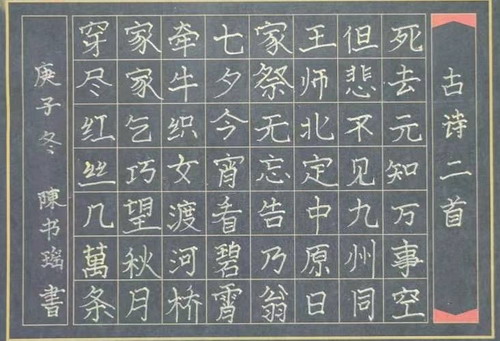 古诗二首
死去元知万事空
但悲不见九州同
王师北定中原日
家祭无忘告乃翁
七夕今宵看碧霄
牵牛织女渡河桥
家家乞巧望秋月
穿尽红丝几萬条
庚子冬 陳书瑶書